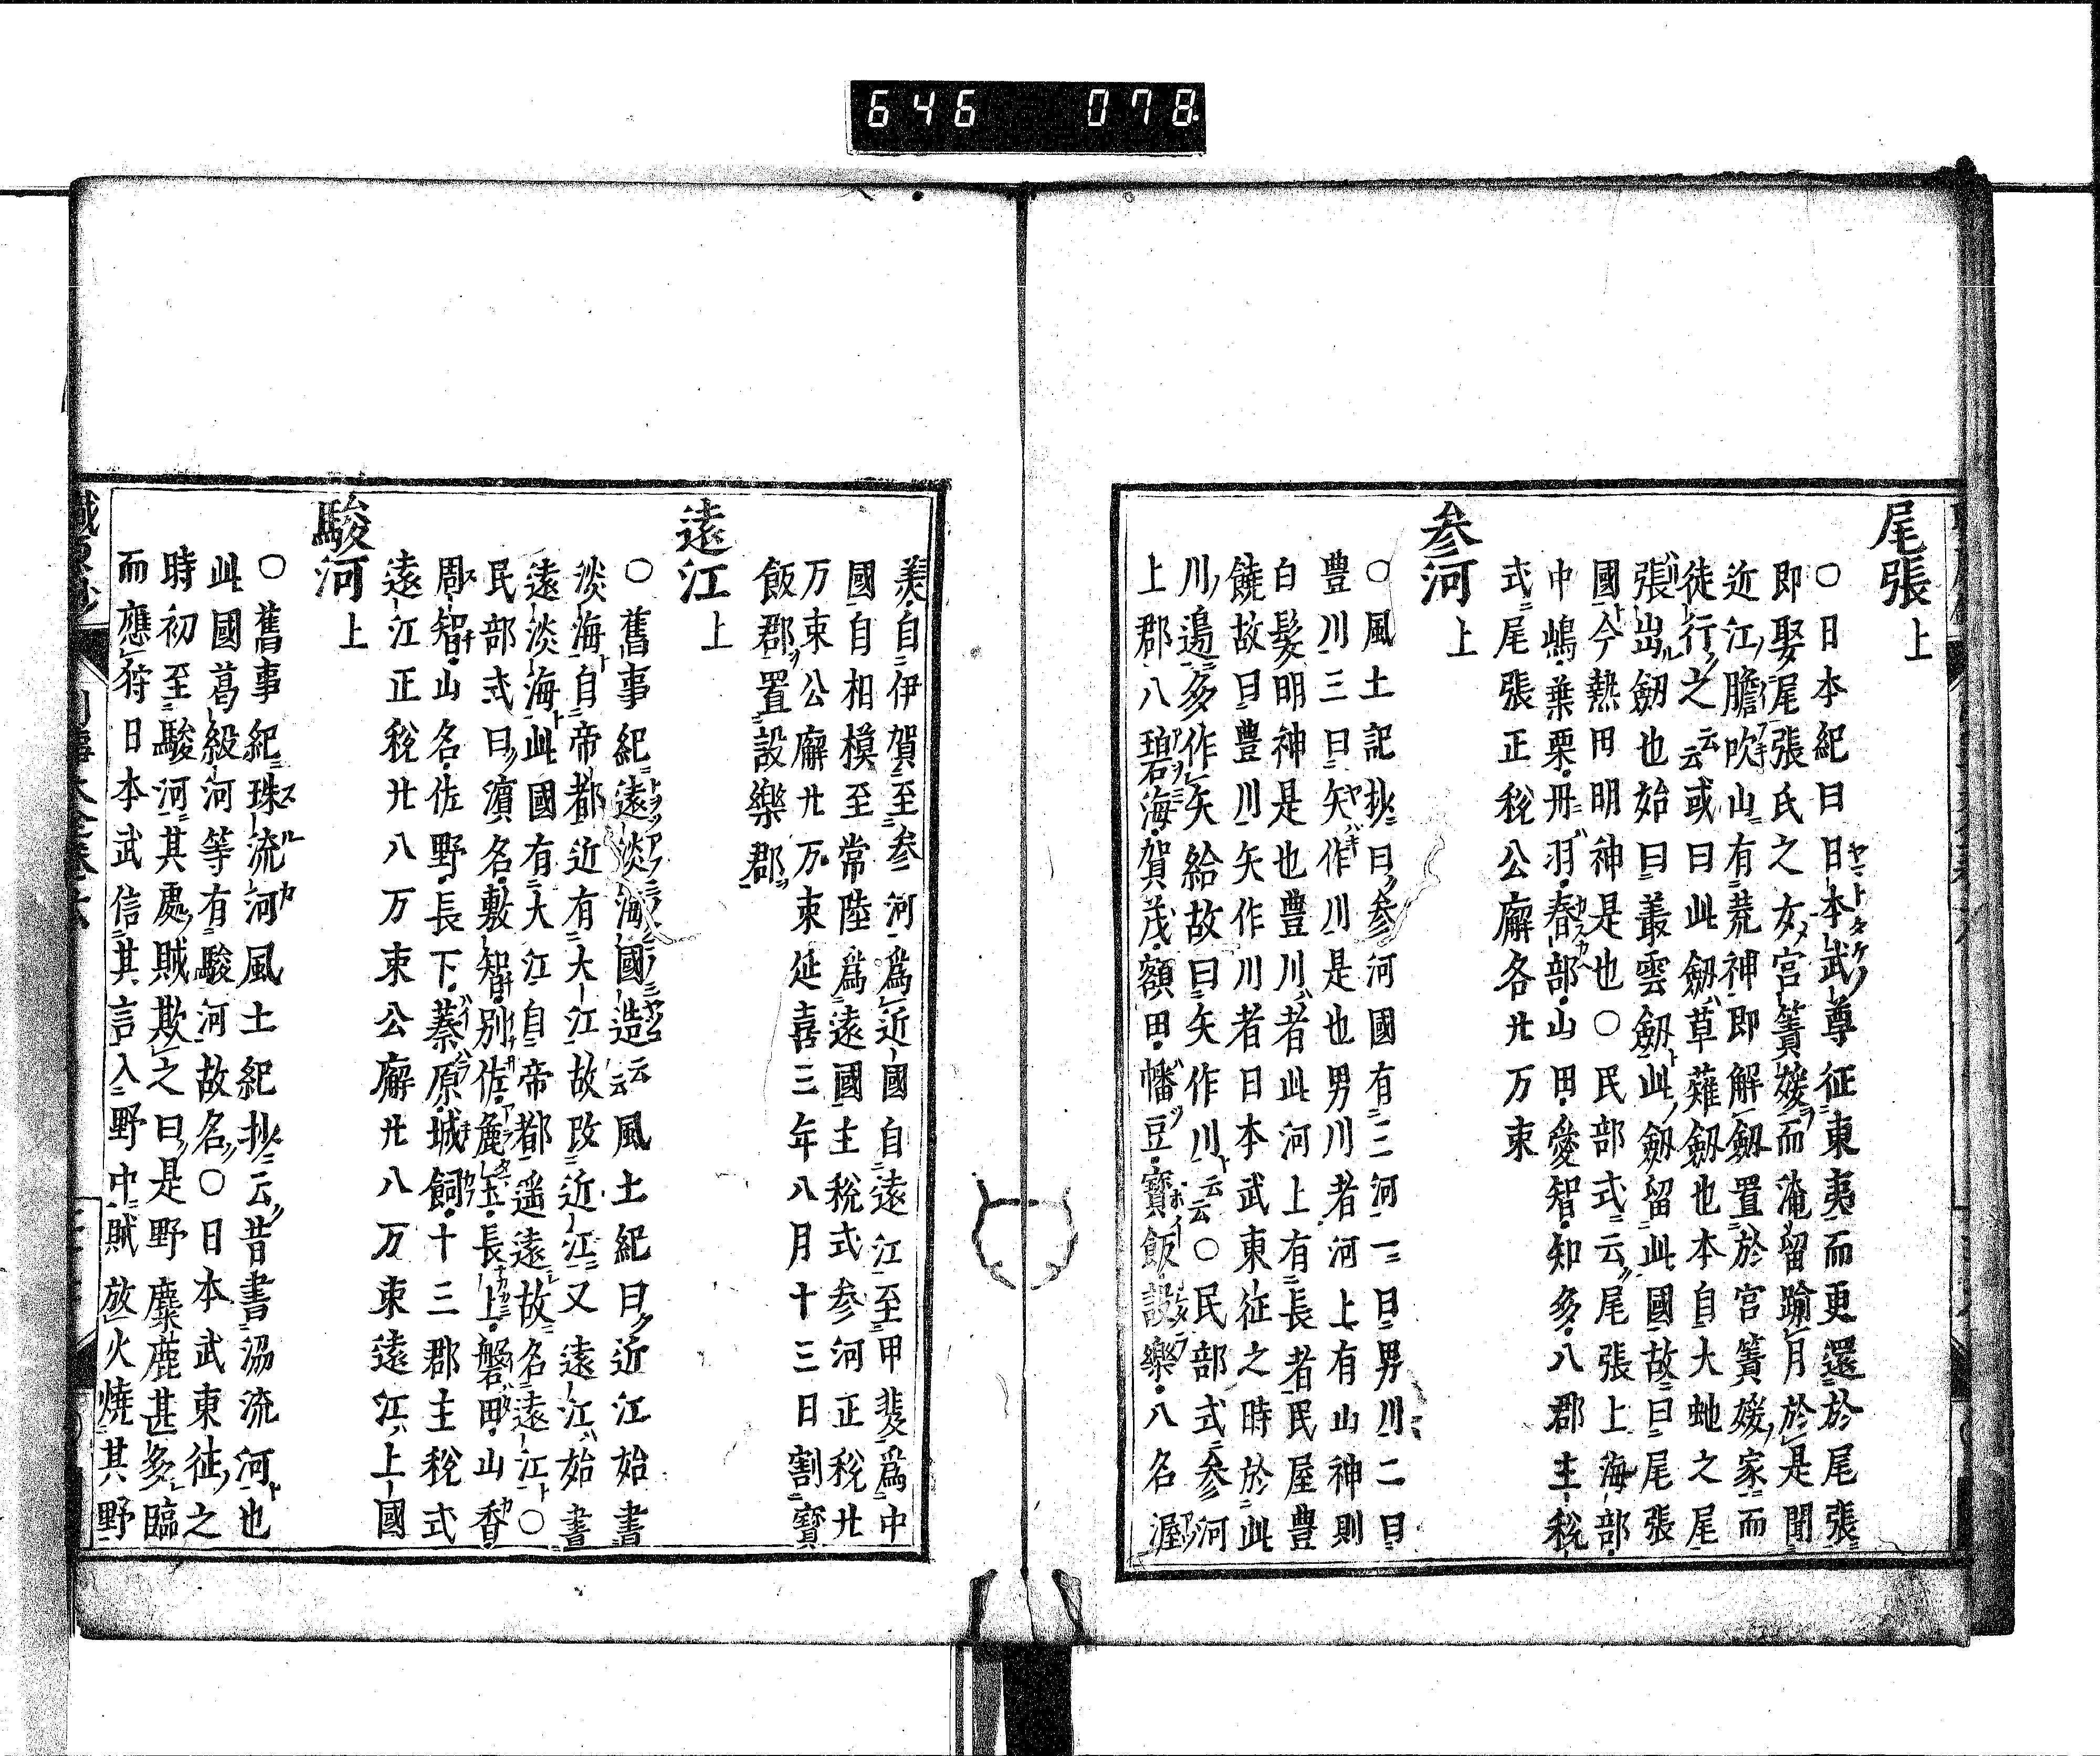 646 078
尾張上
○日本紀曰日本武尊征東夷而更還於尾張
即娶尾張氏之女宮簀媛而淹留踰月於是聞
近江膽吹山有荒神即解劔置於宮簀媛家而
徒行之云云或曰此劔草薙劔也本自大虵之尾
張出劔也始曰叢雲劔此劔留此國故曰尾張
國今熱田明神是也○民部式云尾張上海部
中嶋葉栗丹羽春部山田愛智知多八郡主税
式尾張正税公廨各廿万束
参河上
○風土記抄曰参河國有三河一曰男川二曰
豊川三曰矢作川是也男川者河上有山神則
白髮明神是也豊川者此河上有長者民屋豊
饒故曰豊川矢作川者日本武東征之時於此
川邉多作矢給故曰矢作川云云○民部式参河
上郡八碧海賀茂額田幡豆寶飯設樂八名渥
美自伊賀至参河爲近國自遠江至甲斐爲中
國自相模至常陸爲遠國主税式参河正税廿
万束公廨廿万束延喜三年八月十三日割寶
飯郡置設樂郡
遠江上
○舊事紀遠淡海國造云云風土紀曰近江始書
淡海自帝都近有大江故改近江又遠江始書
遠淡海此國有大江自帝都遥遠故名遠江○
民部式曰濵名敷智引佐麁玉長上磐田山香
周智山名佐野長下蓁原城飼十三郡主税式
遠江正税廿八万束公廨廿八万束遠江上國
駿河上
○舊事紀珠流河風土紀抄云昔書沠流河也
此國葛級河等有駿河故名○日本武東征之
時初至駿河其處賊欺之曰是野麋鹿甚多臨
而應狩日本武信其言入野中賊放火燒其野